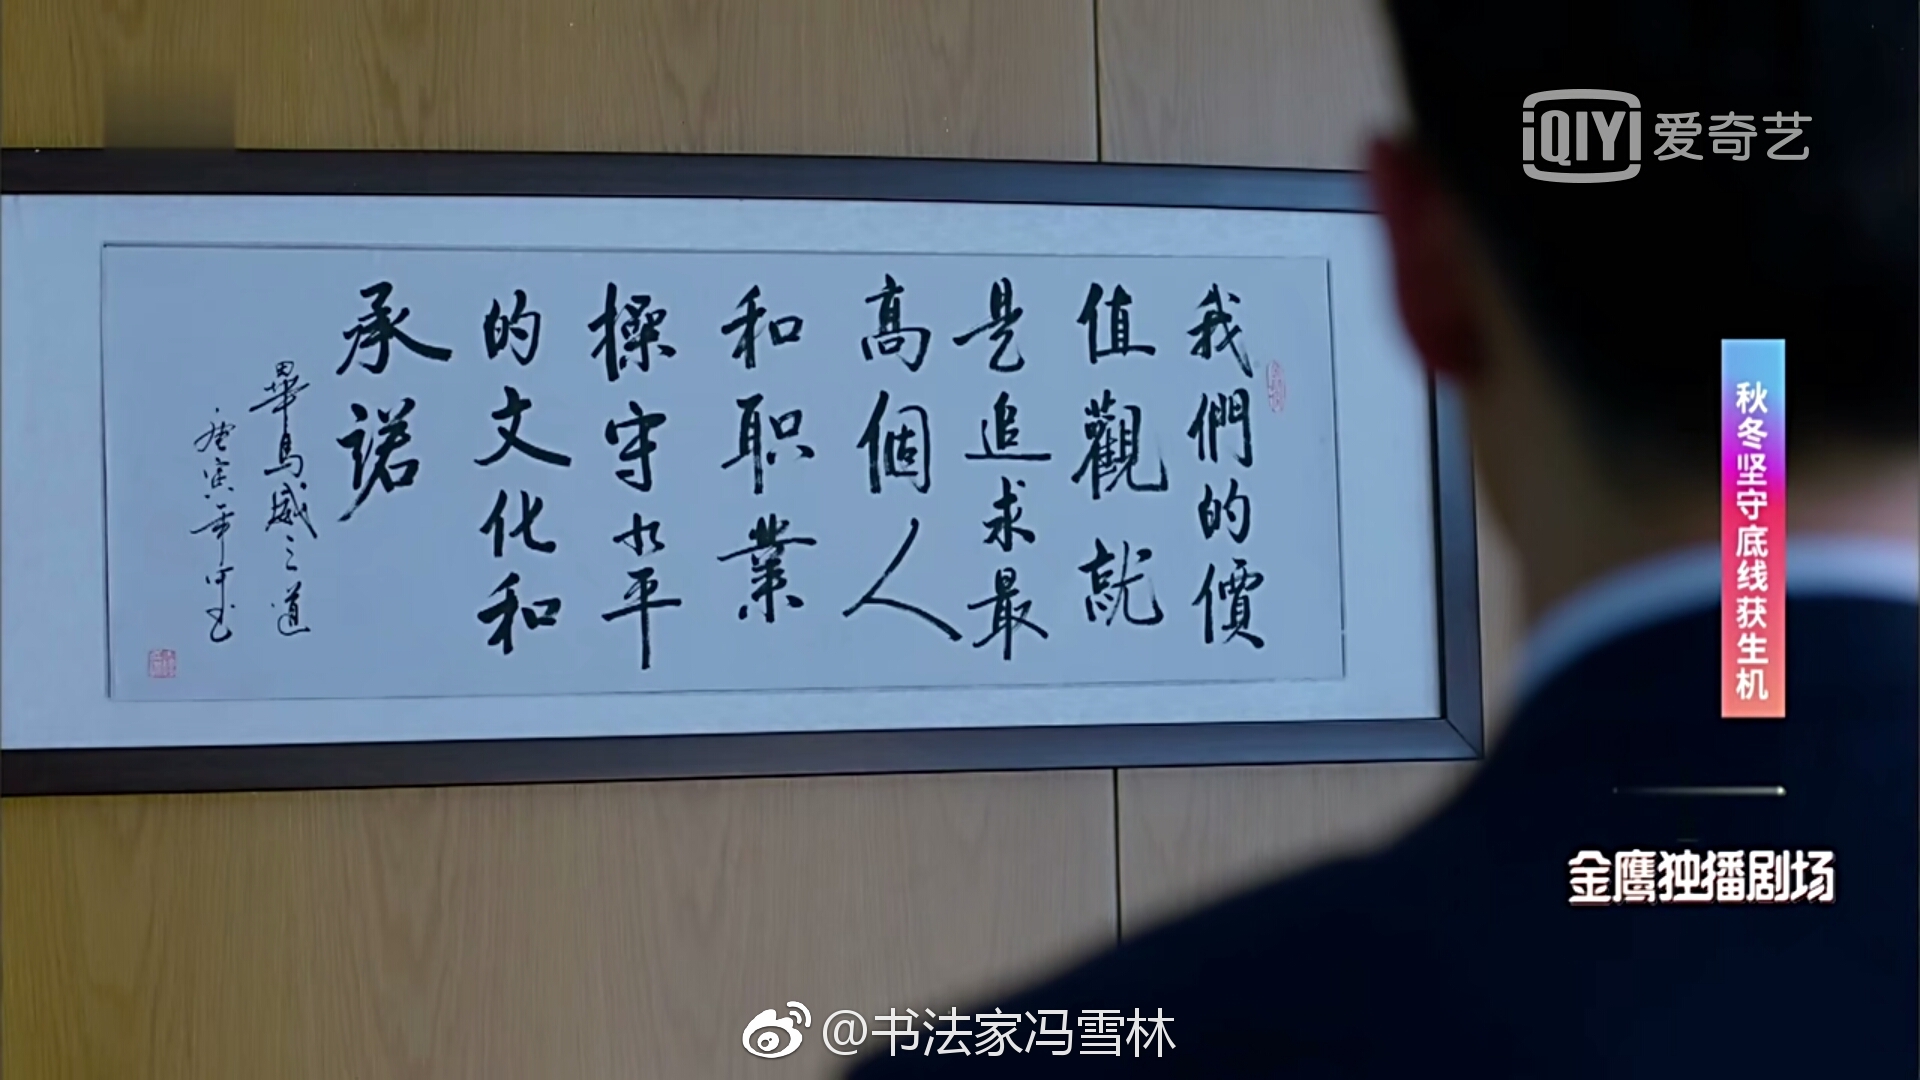 我們的價
值觀就
是追求最
高個人
和职業
操守水平
的文化和
承諾
畢馬威之道
庚寅年
iQIYI 爱奇艺
秋冬坚守底线获生机
金鹰独播剧场
@书法家冯雪林